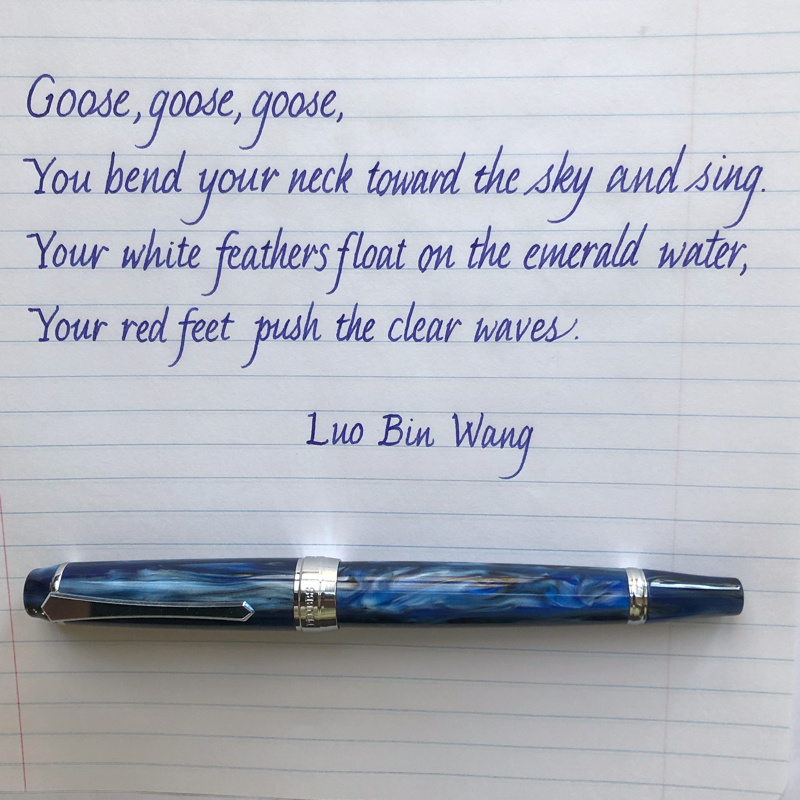 Goose, goose, goose,
You bend your neck toward the sky and sing.
Your white feathers float on the emerald water,
Your red feet push the clear waves.
Luo Bin Wang